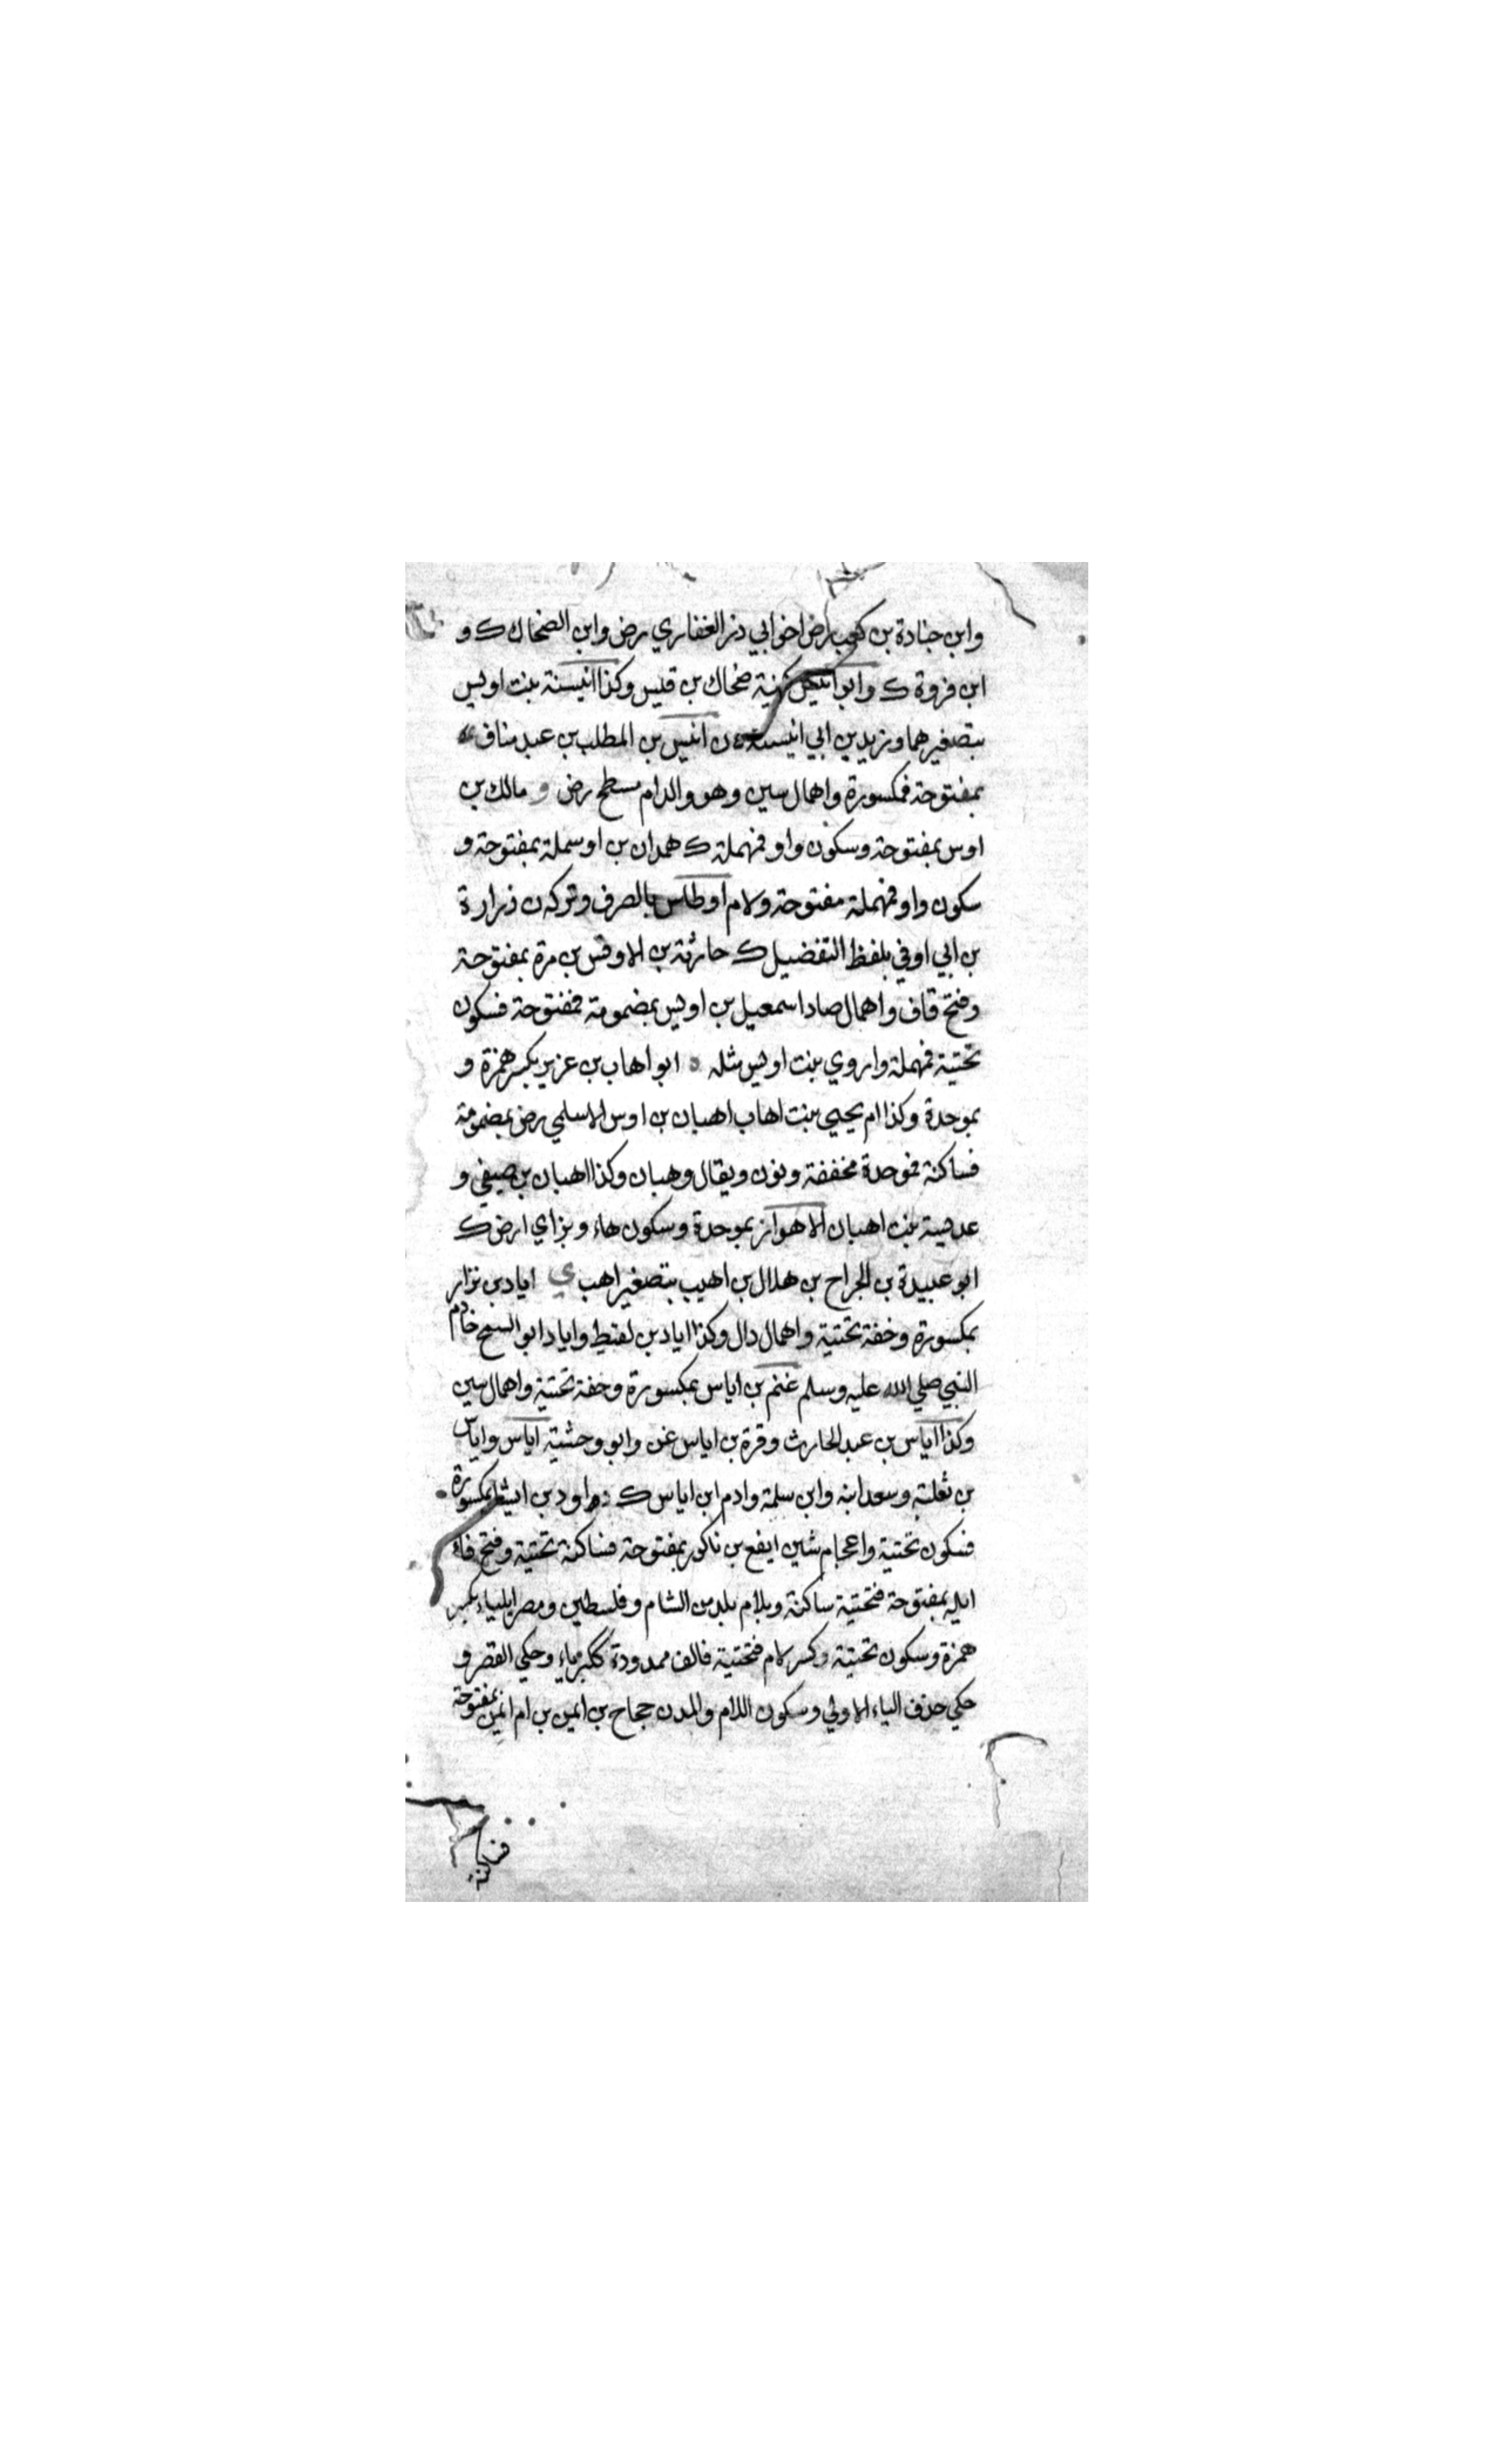 وابن جنادة بن كعب رض اخو ابي ذر الغفاري رض وابن الضحاك ك و
ابن فروة ك وابو انيس كنية ضحاك بن قيس وكذا انيسة بنت اويس
بتصغيرهما ويزيد بن ابي انيسة ن انيس بن المطلب بن عبد مناف
بمفتوحة فمكسورة واهمال سين وهو والد ام مسطح رض و مالك بن
اوس بمفتوحة وسكون واو فمهملة ك همدان بن اوسملة بمفتوحة و
سكون واو فمهملة مفتوحة ولام اوطاس بالصرف وتركه ن زرارة
بن ابي اوفي بلفظ التفضيل ك حارثة بن الاوقس بن مرة بمفتوحة
وفتح قاف واهمال صاد اسمعيل بن اويس بمضمومة فمفتوحة فسكون
تحتية فمهملة واروي بنت اويس مثله ه ابو اهاب بن عزيز بكسر همزة و
بموحدة وكذا ام يحيي بنت اهاب اهبان بن اوس الاسلمي رض بمضمومة
فساكنة فموحدة مخففة ونون ويقال وهبان وكذا اهبان بن صيفي و
عديسة بنت اهبان الاهواز بموحدة وسكون هاء وبزاي ارض ك
ابو عبيدة بن الجراح بن هلال بن اهيب بتصغير اهب ي اياد بن نزار
بمكسورة وخفة تحتية واهمال دال وكذا اياد بن لقيط واياد ابو السمح خادم
النبي صلي الله عليه وسلم غنم بن اياس بمكسورة وخفة تحتية واهمال سين
وكذا اياس بن عبد الحارث وقرة بن اياس غن وابو وحشية اياس واياس
بن ثعلبة وسعد ابنه وابن سلمة وادم ابن اياس ك داود بن ايشا بمكسورة
فسكون تحتية واعجام شين ايفع بن ناكور بمفتوحة فساكنة تحتية وفتح فاء
ايله بمفتوحة فتحتية ساكنة وبلام بلد من الشام وفلسطين ومصر ايلياء بكسر
همزة وسكون تحتية وكسر لام فتحتية فالف ممدودة ككبرياء وحكي القصر و
حكي حذف الياء الاولي وسكون اللام والمد ن حجاح بن ايمن بن ام ايمن بمفتوحة
فساكنة